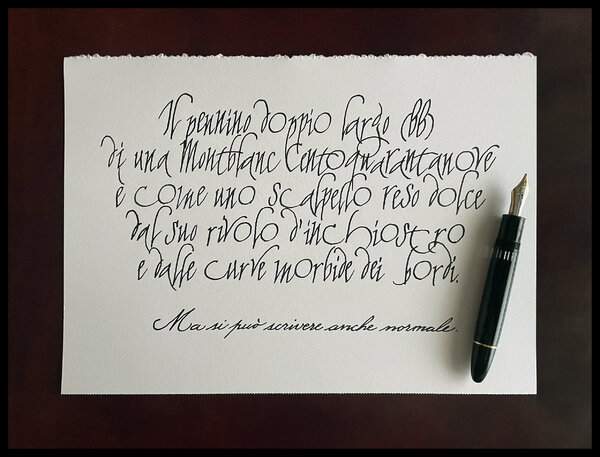 Il pennino doppio largo (BB)
di una Montblanc Centoquarantanove
è come uno scalpello reso dolce
dal suo rivolo d'inchiostro
e dalle curve morbide dei bordi.
Ma si può scrivere anche normale.